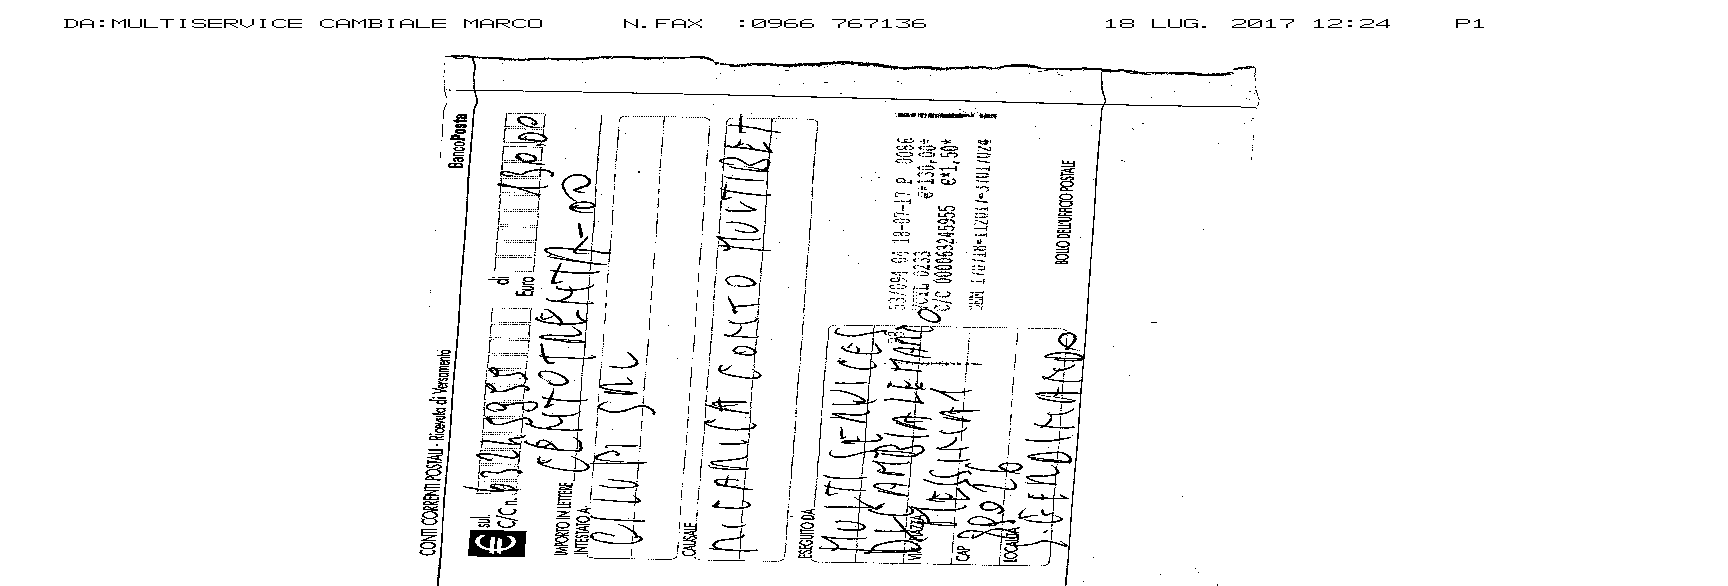 DA:MULTISERVICE CAMBIALE MARCO N.FAX :0966 767136 18 LUG. 2017 12:24 P1
CONTI CORRENTI POSTALI - Ricevuta di Versamento BancoPosta
€ sul C/C n. 63245955 di Euro 130,00
IMPORTO IN LETTERE CENTOTRENTA-00
INTESTATO A:
CAUSALE
RICARICA CONTO MULTIRET
ESEGUITO DA
MULTISERVICES
DI CAMBIALE MARCO
VIA PIAZZA MESSINA 1
CAP 89026
LOCALITÀ S. FERDINANDO
53/094 04 18-07-17 P 0086
VCYL 0233 €*130,00*
C/C 000063245955 €*1,50*
BOLLO DELL'UFFICIO POSTALE